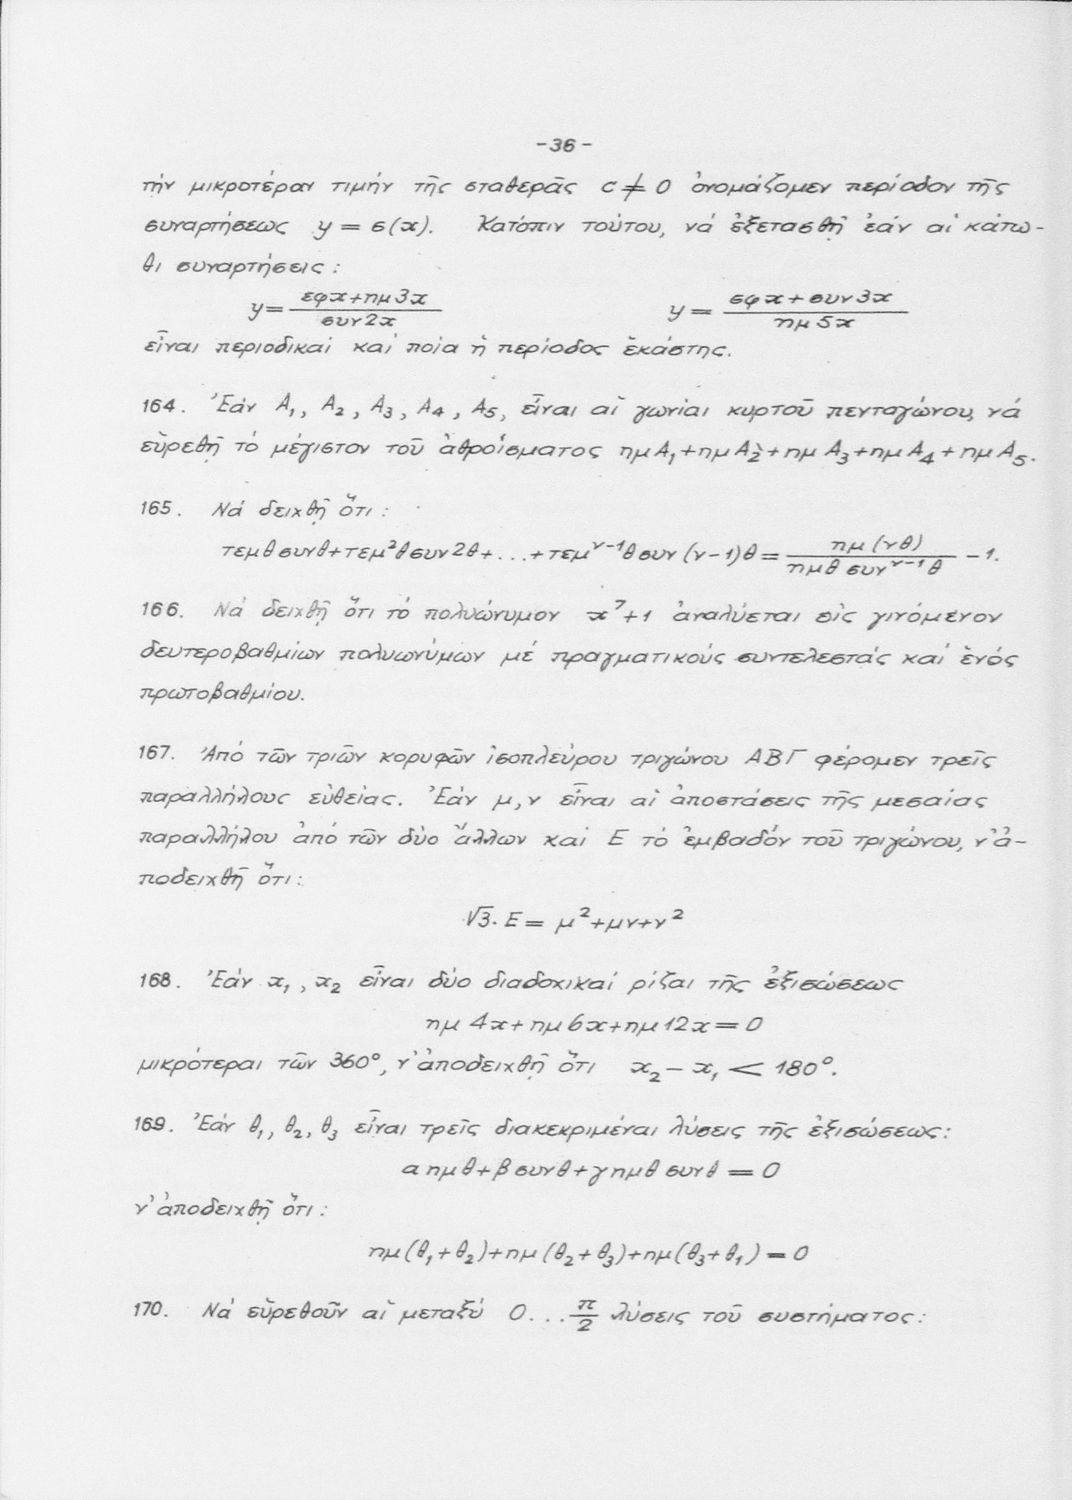 -36-
τήν μικροτέραν τιμήν τῆς σταθερᾶς c ≠ 0 ὀνομάζομεν περίοδον τῆς
συναρτήσεως y = σ(x). Κατόπιν τούτου, νά ἐξετασθῇ ἐάν αἱ κάτω-
θι συναρτήσεις :
y = (εφx+ημ3x)/(συν2x) y = (σφx+συν3x)/(ημ5x)
εἶναι περιοδικαί καί ποία ἡ περίοδος ἑκάστης.
164. Ἐάν A₁, A₂, A₃, A₄, A₅, εἶναι αἱ γωνίαι κυρτοῦ πενταγώνου, νά
εὑρεθῇ τό μέγιστον τοῦ ἀθροίσματος ημA₁+ημA₂+ημA₃+ημA₄+ημA₅.
165. Νά δειχθῇ ὅτι :
τεμθσυνθ+τεμ²θσυν2θ+...+τεμ^(ν-1)θσυν(ν-1)θ = (ημ(νθ))/(ημθ συν^(ν-1)θ) -1.
166. Νά δειχθῇ ὅτι τό πολυώνυμον x⁷+1 ἀναλύεται εἰς γινόμενον
δευτεροβαθμίων πολυωνύμων μέ πραγματικούς συντελεστάς καί ἑνός
πρωτοβαθμίου.
167. Ἀπό τῶν τριῶν κορυφῶν ἰσοπλεύρου τριγώνου ΑΒΓ φέρομεν τρεῖς
παραλλήλους εὐθείας. Ἐάν μ,ν εἶναι αἱ ἀποστάσεις τῆς μεσαίας
παραλλήλου ἀπό τῶν δύο ἄλλων καί Ε τό ἐμβαδόν τοῦ τριγώνου, ν'ἀ-
ποδειχθῇ ὅτι :
√3·E = μ²+μν+ν²
168. Ἐάν x₁, x₂ εἶναι δύο διαδοχικαί ρίζαι τῆς ἐξισώσεως
ημ4x+ημ6x+ημ12x = 0
μικρότεραι τῶν 360°, ν'ἀποδειχθῇ ὅτι x₂ - x₁ < 180°.
169. Ἐάν θ₁, θ₂, θ₃ εἶναι τρεῖς διακεκριμέναι λύσεις τῆς ἐξισώσεως :
αημθ+βσυνθ+γημθσυνθ = 0
ν'ἀποδειχθῇ ὅτι :
ημ(θ₁+θ₂)+ημ(θ₂+θ₃)+ημ(θ₃+θ₁) = 0
170. Νά εὑρεθοῦν αἱ μεταξύ 0...π/2 λύσεις τοῦ συστήματος :